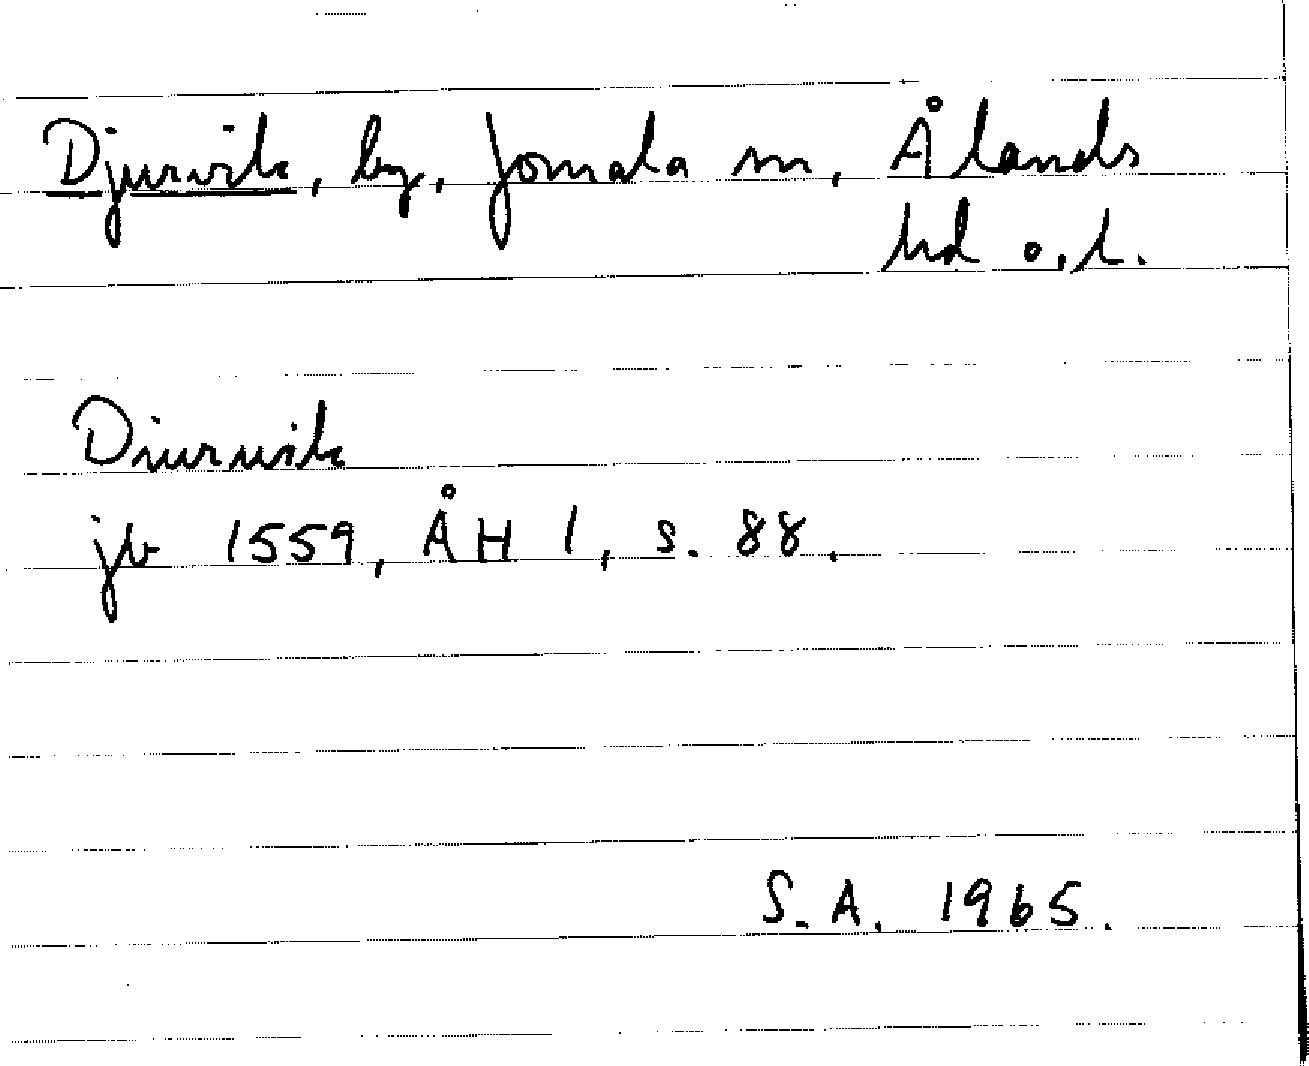 Djurvik, by, Jomala sn, Ålands
hd o. l.
Diuruik
jb 1559, ÅH 1, s. 88.
S.A. 1965.